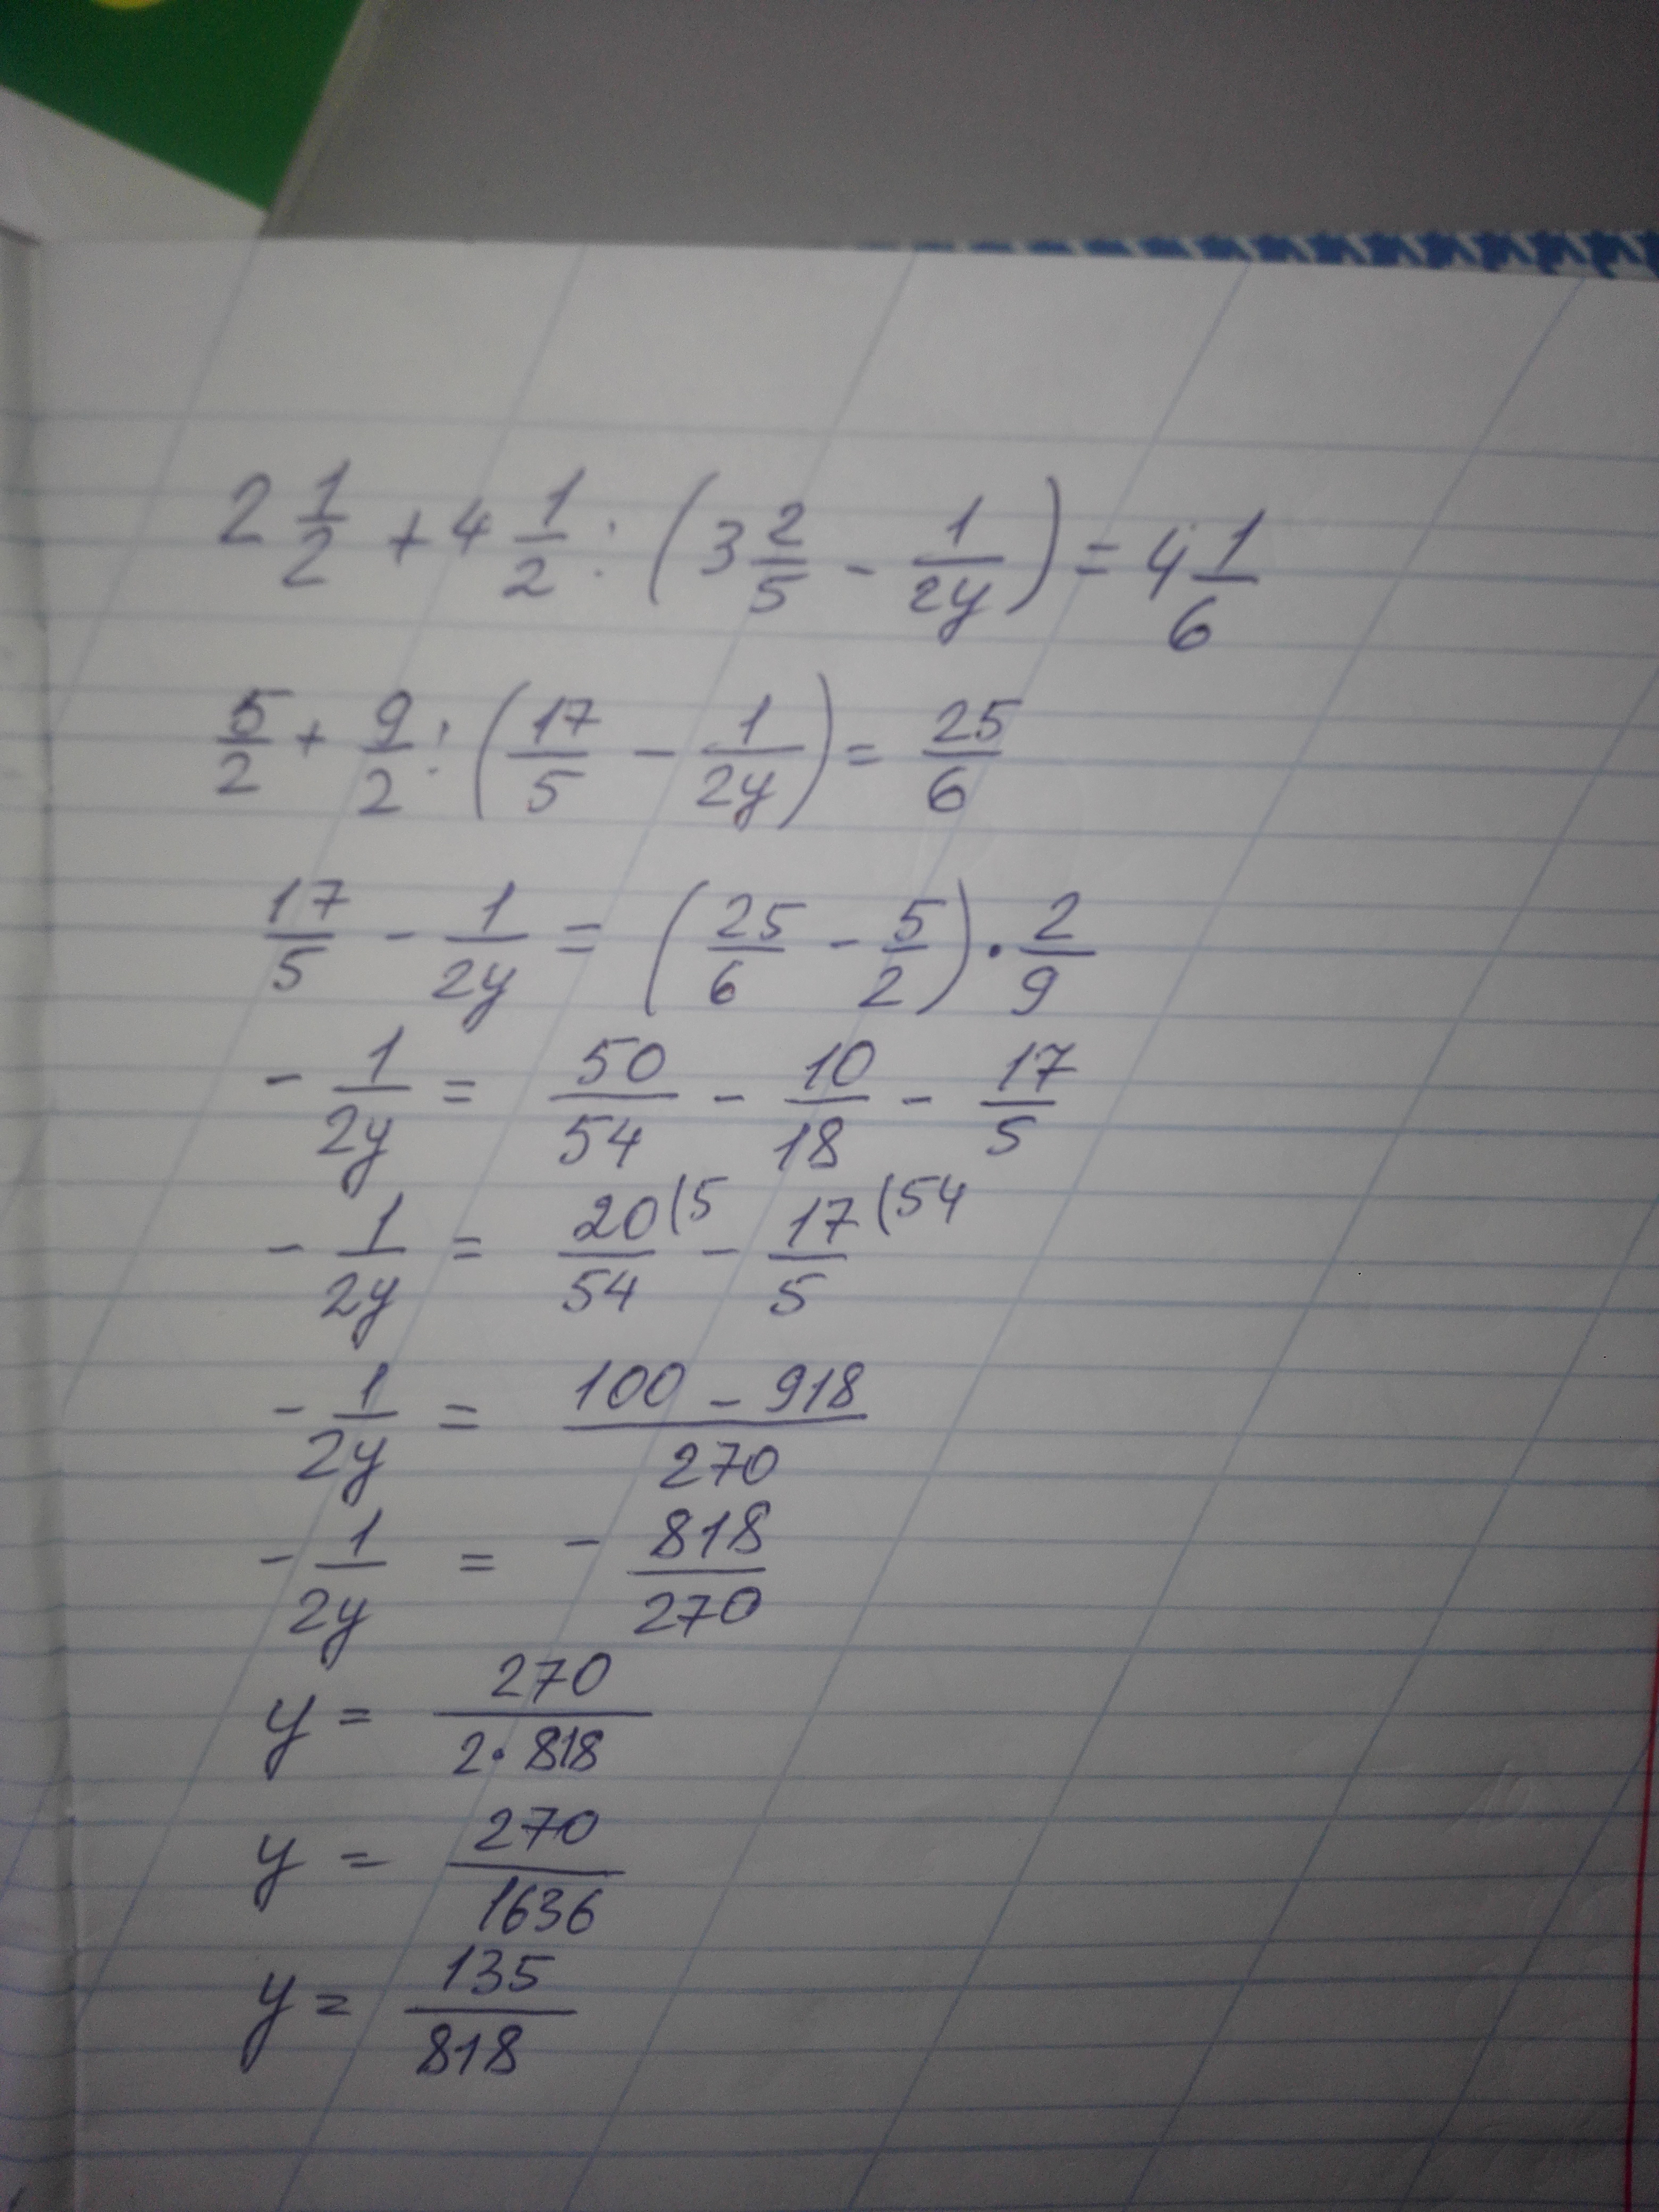 2 1/2 + 4 1/2 : (3 2/5 - 1/2y) = 4 1/6
5/2 + 9/2 : (17/5 - 1/2y) = 25/6
17/5 - 1/2y = (25/6 - 5/2) · 2/9
- 1/2y = 50/54 - 10/18 - 17/5
- 1/2y = 20/54 (5 - 17/5 (54
- 1/2y = 100 - 918/270
- 1/2y = - 818/270
y = 270/2·818
y = 270/1636
y = 135/818